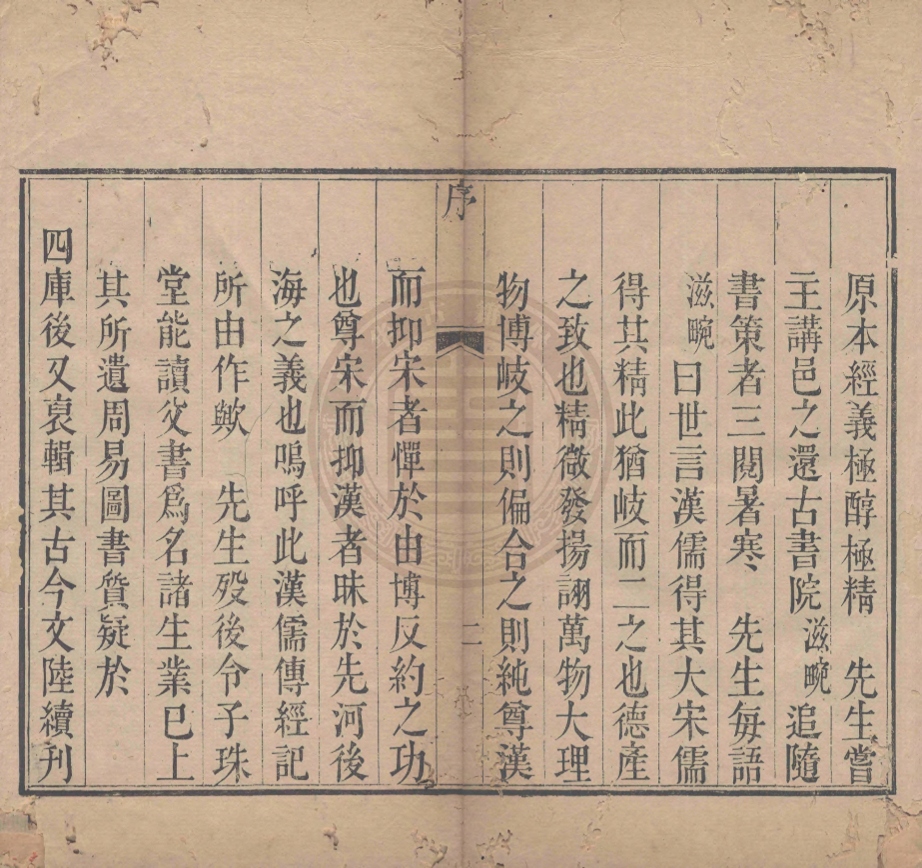 原本經義極醇極精　先生嘗
主講邑之還古書院滋畹追隨
書策者三閱暑寒　先生每語
滋畹曰世言漢儒得其大宋儒
得其精此猶岐而二之也德產
之致也精微發揚詡萬物大理
物博岐之則偏合之則純尊漢
序
二
而抑宋者憚於由博反約之功
也尊宋而抑漢者昧於先河後
海之義也嗚呼此漢儒傳經記
所由作歟　先生歿後令子珠
堂能讀父書爲名諸生業已上
其所遺周易圖書質疑於
四庫後又裒輯其古今文陸續刊